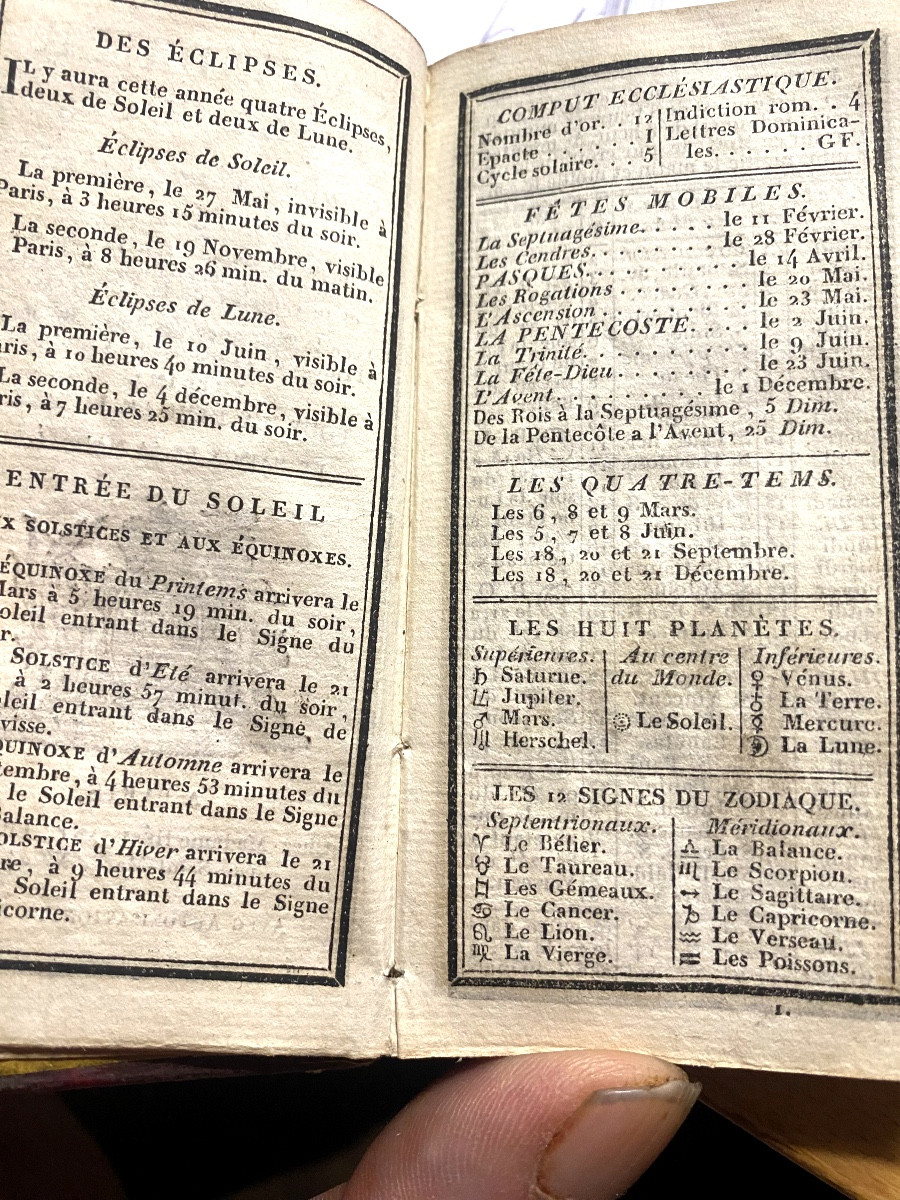 DES ÉCLIPSES.
IL y aura cette année quatre Éclipses,
deux de Soleil et deux de Lune.
Éclipses de Soleil.
La première, le 27 Mai, invisible à
Paris, à 3 heures 15 minutes du soir.
La seconde, le 19 Novembre, visible
Paris, à 8 heures 26 min. du matin.
Éclipses de Lune.
La première, le 10 Juin, visible à
ris, à 10 heures 40 minutes du soir.
La seconde, le 4 décembre, visible à
ris, à 7 heures 25 min. du soir.
ENTRÉE DU SOLEIL
X SOLSTICES ET AUX ÉQUINOXES.
ÉQUINOXE du Printems arrivera le
Mars à 5 heures 19 min. du soir,
oleil entrant dans le Signe du
r.
SOLSTICE d'Eté arrivera le 21
à 2 heures 57 minut. du soir,
leil entrant dans le Signe de
visse.
QUINOXE d'Automne arrivera le
tembre, à 4 heures 53 minutes du
le Soleil entrant dans le Signe
Balance.
OLSTICE d'Hiver arrivera le 21
re, à 9 heures 44 minutes du
Soleil entrant dans le Signe
icorne.
COMPUT ECCLÉSIASTIQUE.
Nombre d'or. . 12 Indiction rom. . 4
Epacte . . . . . . I Lettres Dominica-
Cycle solaire. . . 5 les. . . . . . . G F.
FÊTES MOBILES.
La Septuagésime. . . . . . le 11 Février.
Les Cendres. . . . . . . . . le 28 Février.
PASQUES. . . . . . . . . . le 14 Avril.
Les Rogations . . . . . . . . le 20 Mai.
L'Ascension . . . . . . . . . le 23 Mai.
LA PENTECOSTE. . . . le 2 Juin.
La Trinité. . . . . . . . . . le 9 Juin.
La Fête-Dieu . . . . . . . . le 23 Juin.
L'Avent. . . . . . . . . . le 1 Décembre.
Des Rois à la Septuagésime, 5 Dim.
De la Pentecôte a l'Avent, 25 Dim.
LES QUATRE-TEMS.
Les 6, 8 et 9 Mars.
Les 5, 7 et 8 Juin.
Les 18, 20 et 21 Septembre.
Les 18, 20 et 21 Décembre.
LES HUIT PLANÈTES.
Supérieures. Au centre Inférieures.
♄ Saturne. du Monde. ♀ Vénus.
♃ Jupiter. ♁ La Terre.
♂ Mars. Le Soleil. ☿ Mercure.
Herschel. La Lune.
LES 12 SIGNES DU ZODIAQUE.
Septentrionaux. Méridionaux.
♈ Le Bélier. ♎ La Balance.
♉ Le Taureau. ♏ Le Scorpion.
♊ Les Gémeaux. Le Sagittaire.
♋ Le Cancer. ♑ Le Capricorne.
♌ Le Lion. ♒ Le Verseau.
♍ La Vierge. ♓ Les Poissons.
1.